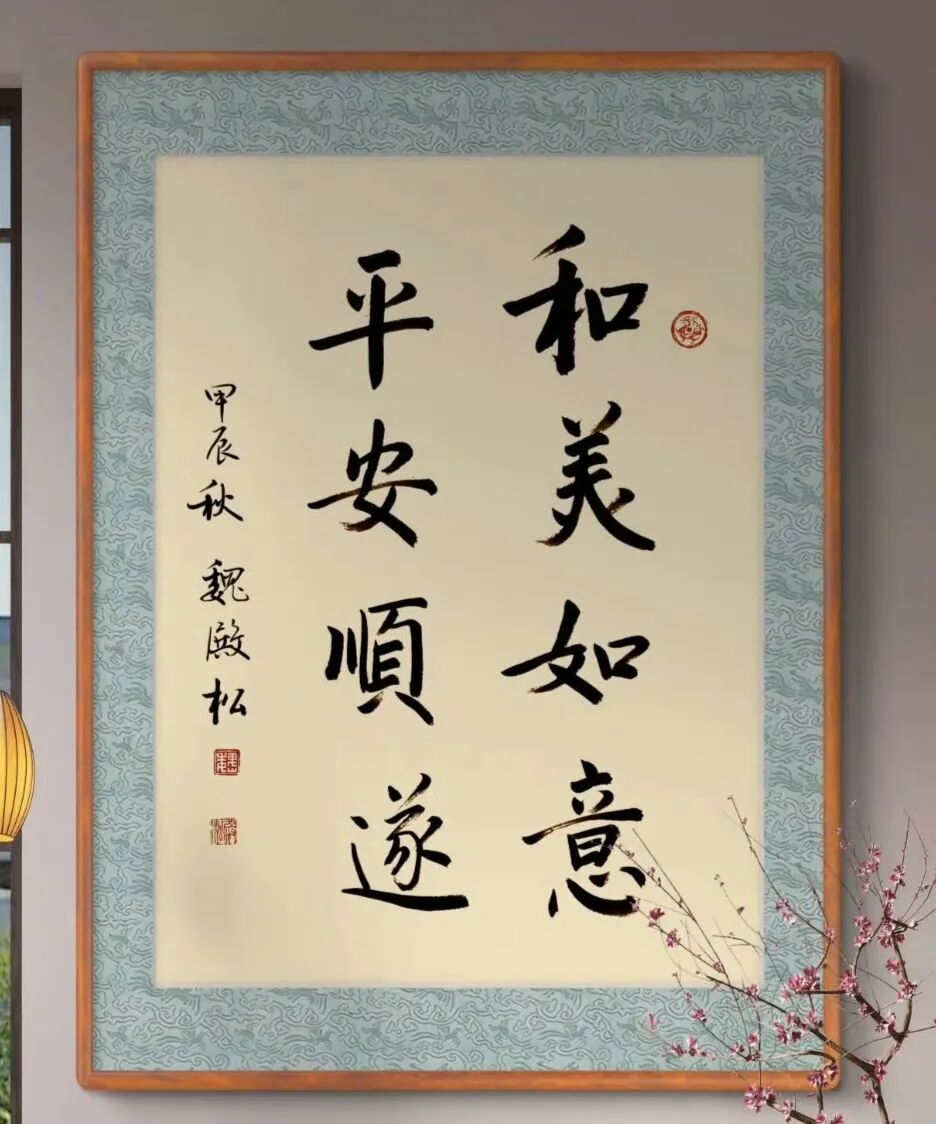 和美如意
平安順遂
甲辰秋 魏殿松